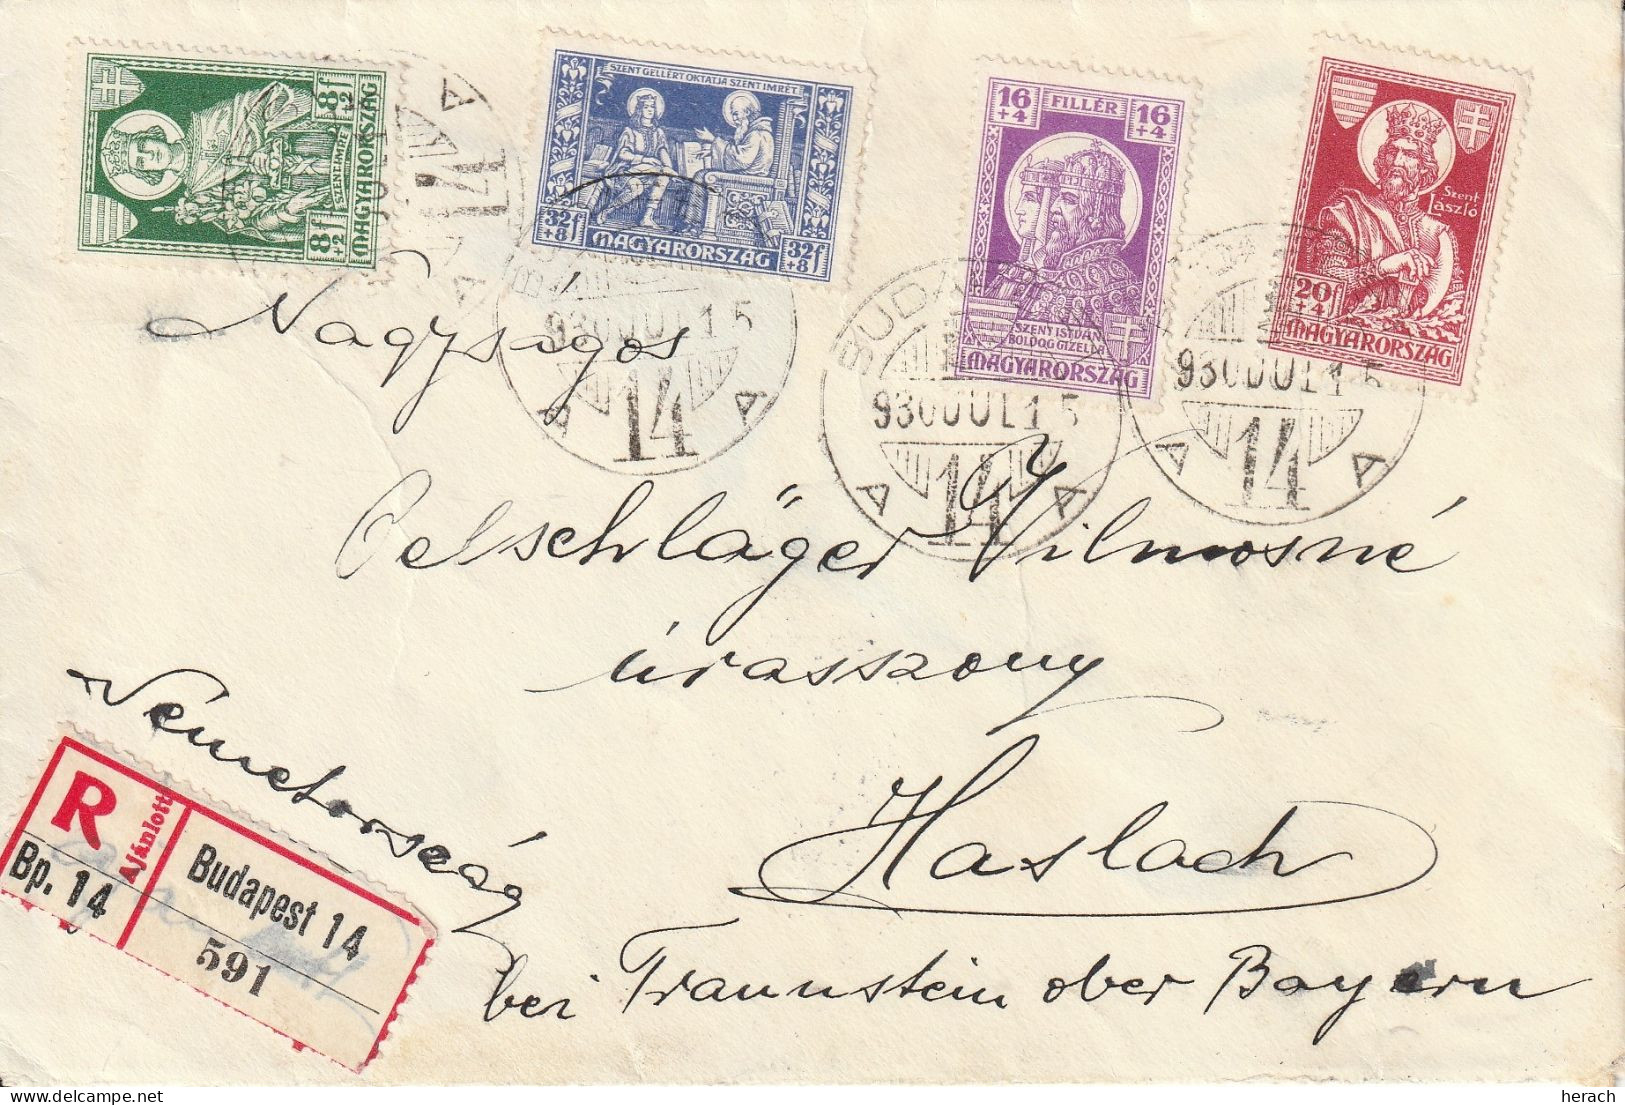 8f +2
SZENT IMRE
MAGYARORSZÁG
8f +2
SZENT GELLÉRT OKTATJA SZENT IMRÉT
32f +8
MAGYARORSZÁG
32f +8
16 +4
FILLÉR
16 +4
SZENT ISTVÁN
BOLDOG GIZELLA
MAGYARORSZÁG
Szent
László
20f +4
MAGYARORSZÁG
A 14 A
930 JUL 15
A 14 A
BUDAPEST
930 JUL 15
A 14 A
930 JUL 15
A 14 A
Nagyságos
Oelschläger Vilmosné
úrasszony
Haslach
bei Traunstein ober Bayern
Németország
R
Ajánlott
Bp. 14
Budapest 14
591
herach